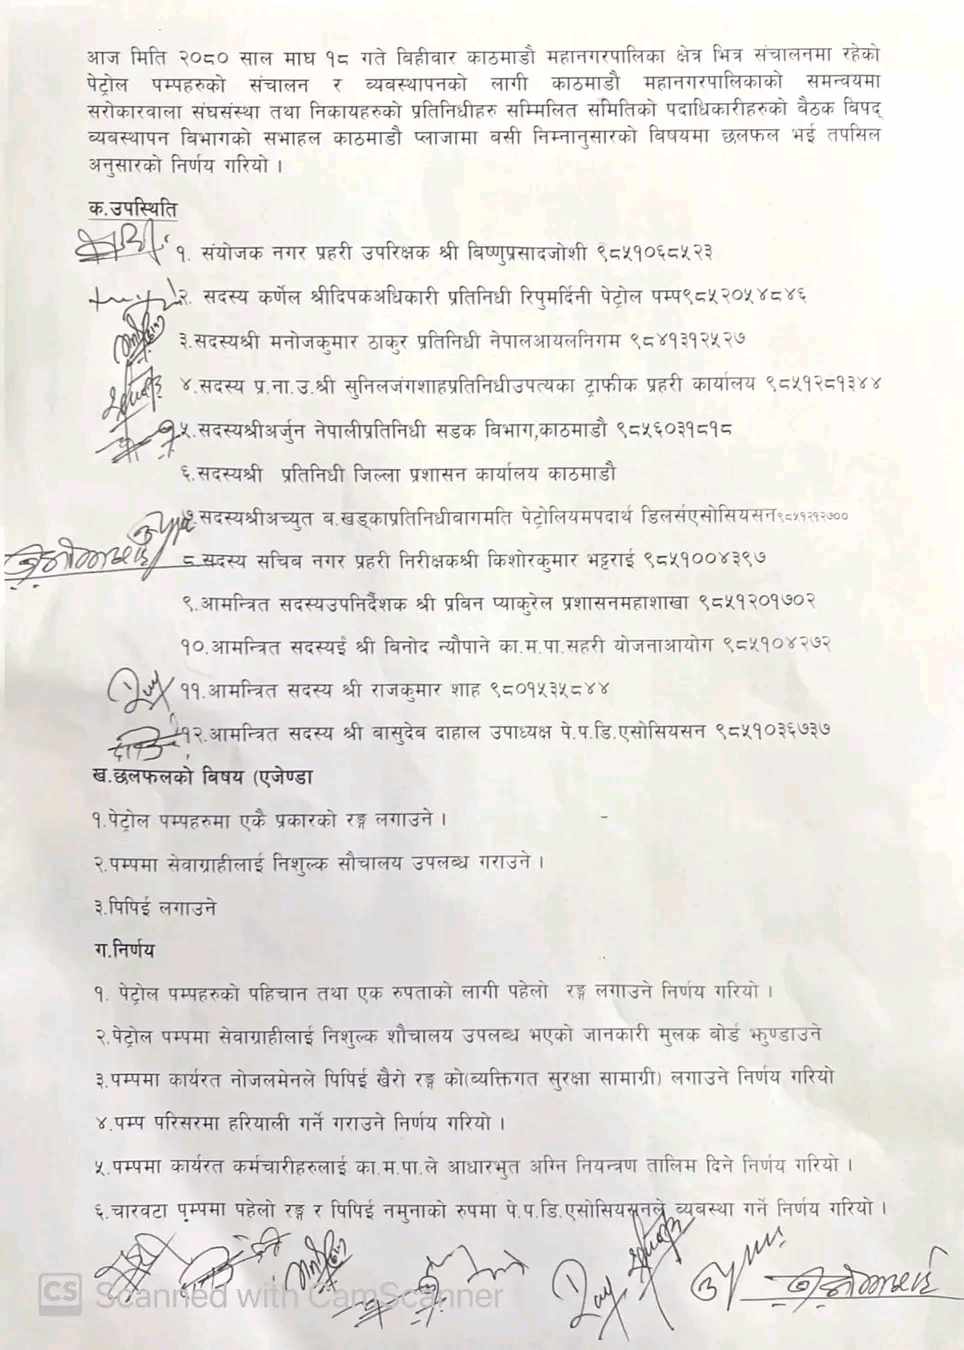 आज मिति २०८० साल माघ १८ गते बिहीवार काठमाडौ महानगरपालिका क्षेत्र भित्र संचालनमा रहेको
पेट्रोल पम्पहरुको संचालन र व्यवस्थापनको लागी काठमाडौ महानगरपालिकाको समन्वयमा
सरोकारवाला संघसंस्था तथा निकायहरुको प्रतिनिधीहरु सम्मिलित समितिको पदाधिकारीहरुको बैठक बिपद्
व्यवस्थापन बिभागको सभाहल काठमाडौ प्लाजामा बसी निम्नानुसारको विषयमा छलफल भई तपसिल
अनुसारको निर्णय गरियो ।
क.उपस्थिति
१. संयोजक नगर प्रहरी उपरिक्षक श्री बिष्णुप्रसादजोशी ९८५१०६८५२३
२. सदस्य कर्णेल श्रीदिपकअधिकारी प्रतिनिधी रिपुमर्दिनी पेट्रोल पम्प९८५२०५४८४६
३.सदस्यश्री मनोजकुमार ठाकुर प्रतिनिधी नेपालआयलनिगम ९८४१३१२५२७
४.सदस्य प्र.ना.उ.श्री सुनिलजंगशाहप्रतिनिधीउपत्यका ट्राफीक प्रहरी कार्यालय ९८५१२८१३४४
५.सदस्यश्रीअर्जुन नेपालीप्रतिनिधी सडक बिभाग,काठमाडौ ९८५६०३१८१८
६.सदस्यश्री प्रतिनिधी जिल्ला प्रशासन कार्यालय काठमाडौ
७.सदस्यश्रीअच्युत ब.खड्काप्रतिनिधीवागमति पेट्रोलियमपदार्थ डिलर्सएसोसियसन९८५१२१२७००
८.सदस्य सचिब नगर प्रहरी निरीक्षकश्री किशोरकुमार भट्टराई ९८५१००४३९७
९.आमन्त्रित सदस्यउपनिर्देशक श्री प्रबिन प्याकुरेल प्रशासनमहाशाखा ९८५१२०१७०२
१०.आमन्त्रित सदस्यई श्री बिनोद न्यौपाने का.म.पा.सहरी योजनाआयोग ९८५१०४२७२
११.आमन्त्रित सदस्य श्री राजकुमार शाह ९८०१५३५८४४
१२.आमन्त्रित सदस्य श्री बासुदेब दाहाल उपाध्यक्ष पे.प.डि.एसोसियसन ९८५१०३६७३७
ख.छलफलको बिषय (एजेण्डा
१.पेट्रोल पम्पहरुमा एकै प्रकारको रङ्ग लगाउने ।
२.पम्पमा सेवाग्राहीलाई निशुल्क सौचालय उपलब्ध गराउने ।
३.पिपिई लगाउने
ग.निर्णय
१. पेट्रोल पम्पहरुको पहिचान तथा एक रुपताको लागी पहेलो रङ्ग लगाउने निर्णय गरियो ।
२.पेट्रोल पम्पमा सेवाग्राहीलाई निशुल्क शौचालय उपलब्ध भएको जानकारी मुलक बोर्ड झुण्डाउने
३.पम्पमा कार्यरत नोजलमेनले पिपिई खैरो रङ्ग को(व्यक्तिगत सुरक्षा सामाग्री) लगाउने निर्णय गरियो
४.पम्प परिसरमा हरियाली गर्ने गराउने निर्णय गरियो ।
५.पम्पमा कार्यरत कर्मचारीहरुलाई का.म.पा.ले आधारभुत अग्नि नियन्त्रण तालिम दिने निर्णय गरियो ।
६.चारवटा पम्पमा पहेलो रङ्ग र पिपिई नमुनाको रुपमा पे.प.डि.एसोसियसनले व्यबस्था गर्ने निर्णय गरियो ।
CS Scanned with CamScanner